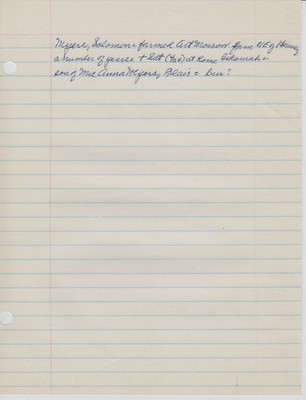 Myers, Solomon - farmed Art Morrow farm NE of Herman
a number of years - + lat (Yrs) at Rome Tekamah -
son of Mrs Anna Myers, Blair - bur?